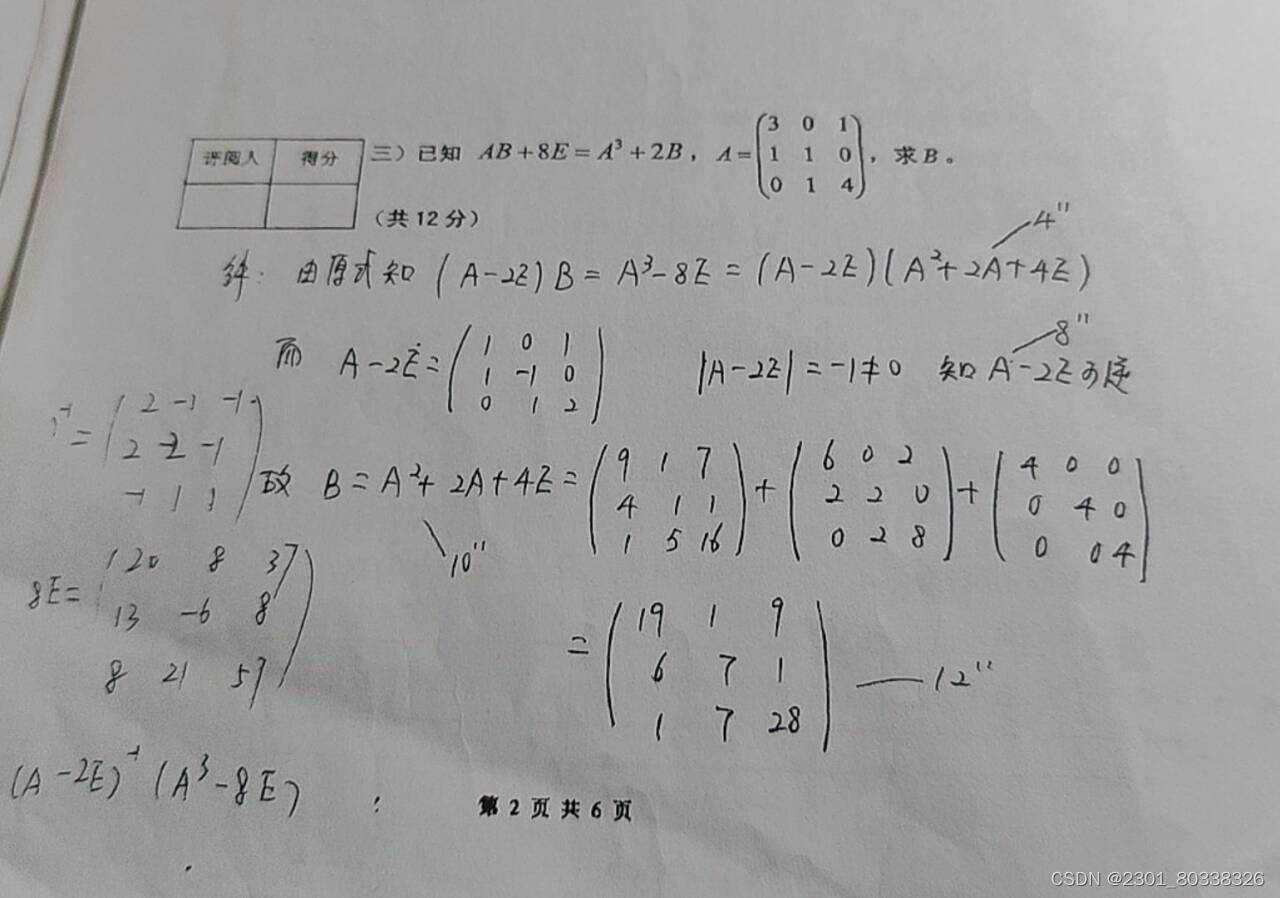 评阅人 得分
三）已知 AB+8E=A³+2B，A=(3 0 1
1 1 0
0 1 4)，求B。
（共12分）
4"
解：由原式知 (A-2E)B=A³-8E=(A-2E)(A²+2A+4E)
8"
而 A-2E=(1 0 1
1 -1 0
0 1 2) |A-2E|=-1≠0 知A-2E可逆
⁻¹=(2 -1 -1
2 -2 -1
-1 1 1)
故 B=A²+2A+4E=(9 1 7
4 1 1
1 5 16)+(6 0 2
2 2 0
0 2 8)+(4 0 0
0 4 0
0 0 4)
10"
8E=(20 8 37
13 -6 8
8 21 57)
=(19 1 9
6 7 1
1 7 28) —12"
(A-2E)⁻¹(A³-8E)
第 2 页 共 6 页
CSDN @2301_80338326